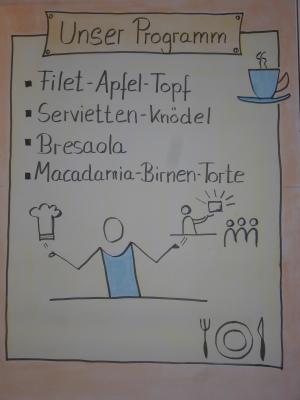 Unser Programm
Filet-Apfel-Topf
Servietten-Knödel
Bresaola
Macadamia-Birnen-Torte